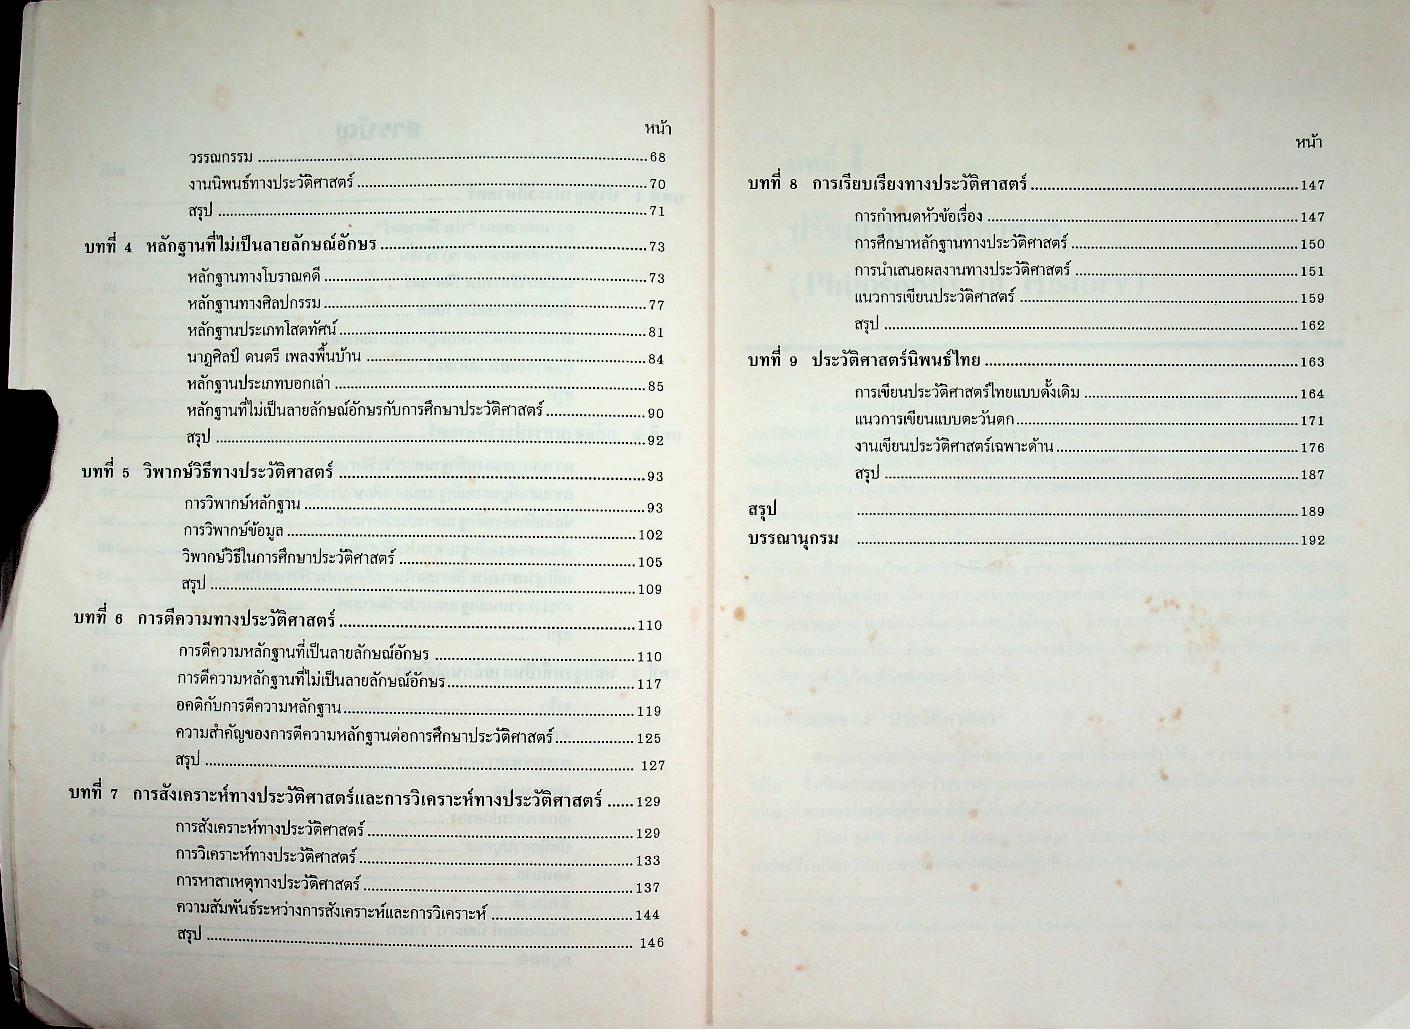 หน้า
วรรณกรรม ........ 68
งานนิพนธ์ทางประวัติศาสตร์ ........ 70
สรุป ........ 71
บทที่ 4 หลักฐานที่ไม่เป็นลายลักษณ์อักษร ........ 73
หลักฐานทางโบราณคดี ........ 73
หลักฐานทางศิลปกรรม ........ 77
หลักฐานประเภทโสตทัศน์ ........ 81
นาฏศิลป์ ดนตรี เพลงพื้นบ้าน ........ 84
หลักฐานประเภทบอกเล่า ........ 85
หลักฐานที่ไม่เป็นลายลักษณ์อักษรกับการศึกษาประวัติศาสตร์ ........ 90
สรุป ........ 92
บทที่ 5 วิพากษ์วิธีทางประวัติศาสตร์ ........ 93
การวิพากษ์หลักฐาน ........ 93
การวิพากษ์ข้อมูล ........ 102
วิพากษ์วิธีในการศึกษาประวัติศาสตร์ ........ 105
สรุป ........ 109
บทที่ 6 การตีความทางประวัติศาสตร์ ........ 110
การตีความหลักฐานที่เป็นลายลักษณ์อักษร ........ 110
การตีความหลักฐานที่ไม่เป็นลายลักษณ์อักษร ........ 117
อคติกับการตีความหลักฐาน ........ 119
ความสำคัญของการตีความหลักฐานต่อการศึกษาประวัติศาสตร์ ........ 125
สรุป ........ 127
บทที่ 7 การสังเคราะห์ทางประวัติศาสตร์และการวิเคราะห์ทางประวัติศาสตร์ ...... 129
การสังเคราะห์ทางประวัติศาสตร์ ........ 129
การวิเคราะห์ทางประวัติศาสตร์ ........ 133
การหาสาเหตุทางประวัติศาสตร์ ........ 137
ความสัมพันธ์ระหว่างการสังเคราะห์และการวิเคราะห์ ........ 144
สรุป ........ 146
หน้า
บทที่ 8 การเรียบเรียงทางประวัติศาสตร์ ........ 147
การกำหนดหัวข้อเรื่อง ........ 147
การศึกษาหลักฐานทางประวัติศาสตร์ ........ 150
การนำเสนอผลงานทางประวัติศาสตร์ ........ 151
แนวการเขียนประวัติศาสตร์ ........ 159
สรุป ........ 162
บทที่ 9 ประวัติศาสตร์นิพนธ์ไทย ........ 163
การเขียนประวัติศาสตร์ไทยแบบดั้งเดิม ........ 164
แนวการเขียนแบบตะวันตก ........ 171
งานเขียนประวัติศาสตร์เฉพาะด้าน ........ 176
สรุป ........ 187
สรุป ........ 189
บรรณานุกรม ........ 192